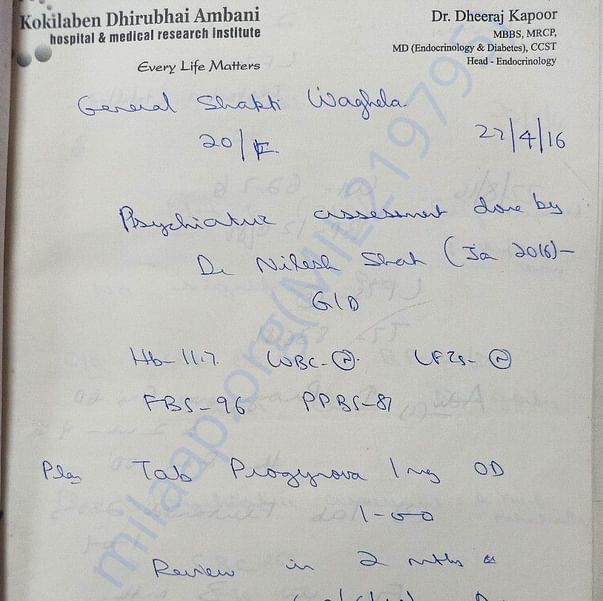 Kokilaben Dhirubhai Ambani
hospital & medical research institute
Every Life Matters
Dr. Dheeraj Kapoor
MBBS, MRCP,
MD (Endocrinology & Diabetes), CCST
Head - Endocrinology
General Shakti Waghela
20/F
27/4/16
Psychiatric assessment done by
Dr Nilesh Shah (Jan 2016) -
GID
Hb-11.7 WBC-Ⓝ LFTs-Ⓝ
FBS-96 PPBS-87
Plan Tab Progynova 1 mg OD
1-0-0
Review in 2 mths
milaap.org(MIL219795)